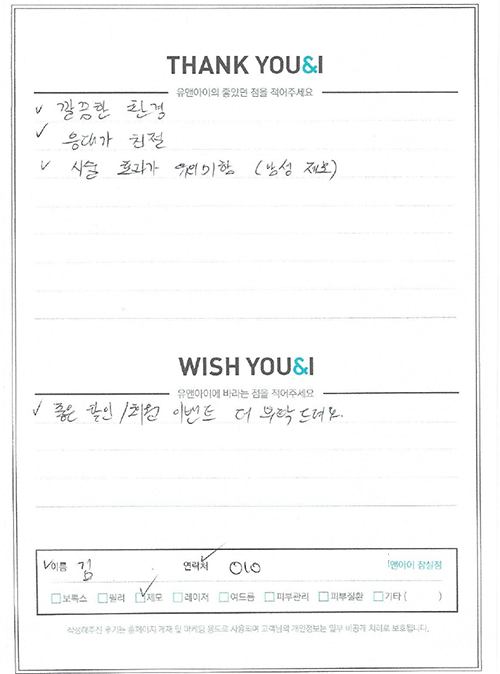 THANK YOU&I
유앤아이의 좋았던 점을 적어주세요
✓ 깔끔한 환경
✓ 응대가 친절
✓ 시술 효과가 유의미함 (남성 제모)
WISH YOU&I
유앤아이에 바라는 점을 적어주세요
✓ 좋은 할인/회원 이벤트 더 부탁드려요.
✓이름 김 연락처 010 앤아이 잠실점
보톡스 필러 ✓제모 레이저 여드름 피부관리 피부질환 기타 ( )
작성해주신 후기는 홈페이지 게재 및 마케팅 용도로 사용되며 고객님의 개인정보는 일부 비공개 처리로 보호됩니다.